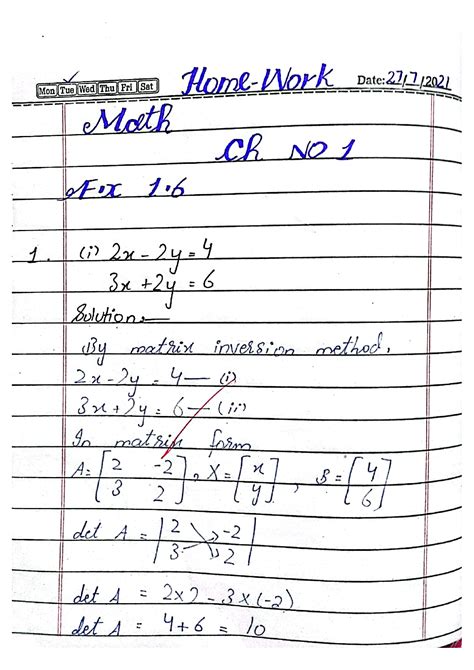 Mon Tue Wed Thu Fri Sat Home-Work Date: 27/7/2021
Math
Ch NO 1
Ex 1.6
1. (i) 2x - 2y = 4
3x + 2y = 6
Solution:—
By matrix inversion method,
2x - 2y = 4 — (i)
3x + 2y = 6 — (ii)
In matrix form
A = [2 -2; 3 2], X = [x; y], B = [4; 6]
det A = |2 -2; 3 2|
det A = 2x2 - 3x(-2)
det A = 4+6 = 10